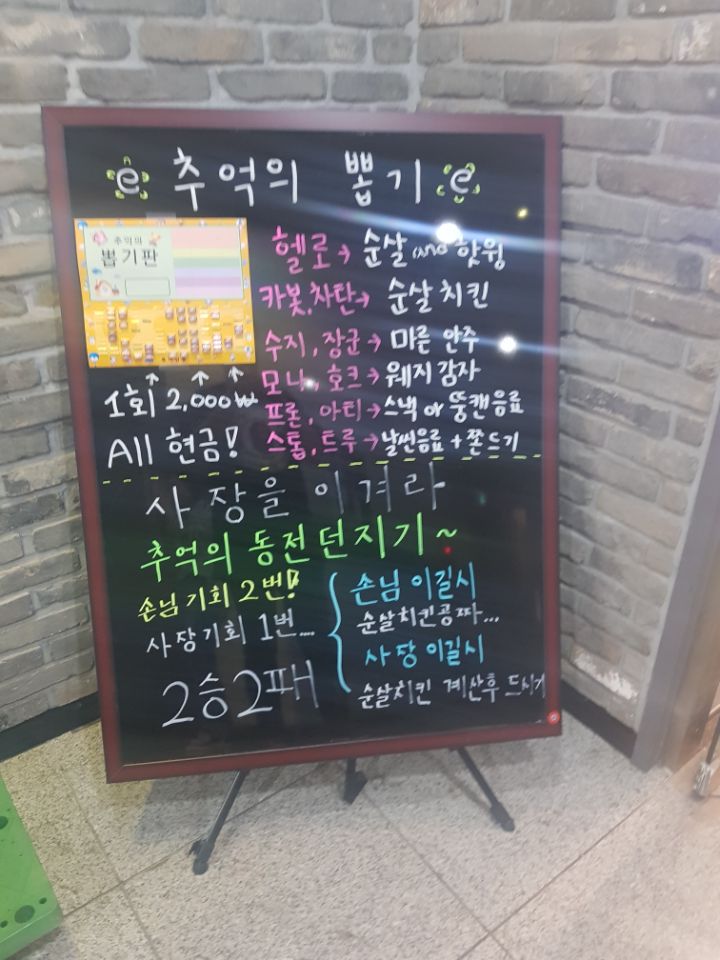 e 추억의 뽑기 e
추억의
뽑기판
헬로→ 순살 and 핫윙
카봇,차탄→ 순살치킨
수지,장군→ 마른 안주
모나,호크→웨지감자
프론,아티→스낵 or 뚱캔음료
스톱,트루→날씬음료 + 쫀드기
1회 2,000₩
All 현금!
사장을 이겨라
추억의 동전던지기~
손님기회 2번!
사장기회 1번...
2승2패
손님 이길시
순살치킨공짜...
사장 이길시
순살치킨 계산후 드시기